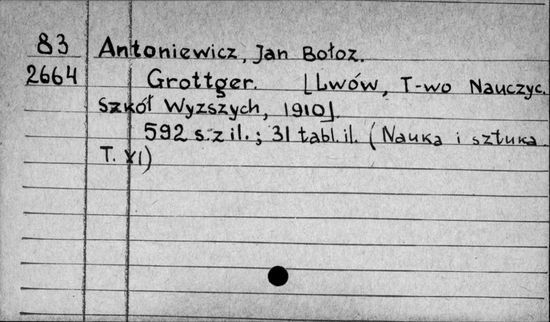 83 Antoniewicz, Jan Bołoz.
2664 Grottger. [Lwów, T-wo Nauczyc.
Szkół Wyzszych, 1910].
592 s. z il.; 31 tabl. il. (Nauka i sztuka.
T. XI)